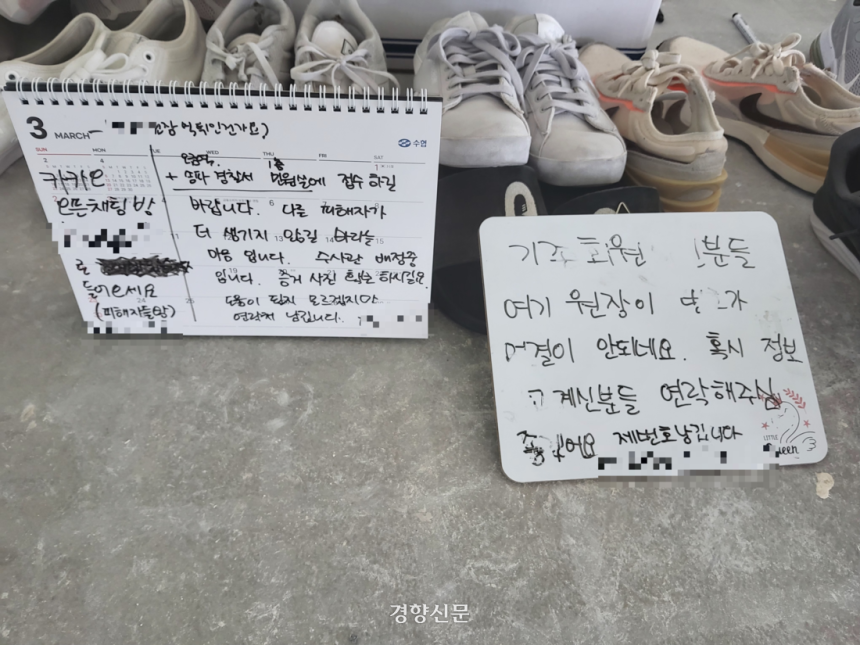 3 MARCH
수협
SUN MON TUE WED THU FRI SAT
먹튀인건가요?
카카오
오픈채팅방
로
들어오세요
(피해자들방)
+ 송파 경찰서 민원실에 접수 하길
바랍니다. 다른 피해자가
더 생기지 않길 바라는
마음 입니다. 수사관 배정중
입니다. 증거 사진 확보 하시길요.
도움이 될지 모르겠지만
연락처 남깁니다.
기존 회원 분들
여기 원장이
연결이 안되네요. 혹시 정보
계신분들 연락해주심
제번호남깁니다
LITTLE
Queen
경향신문